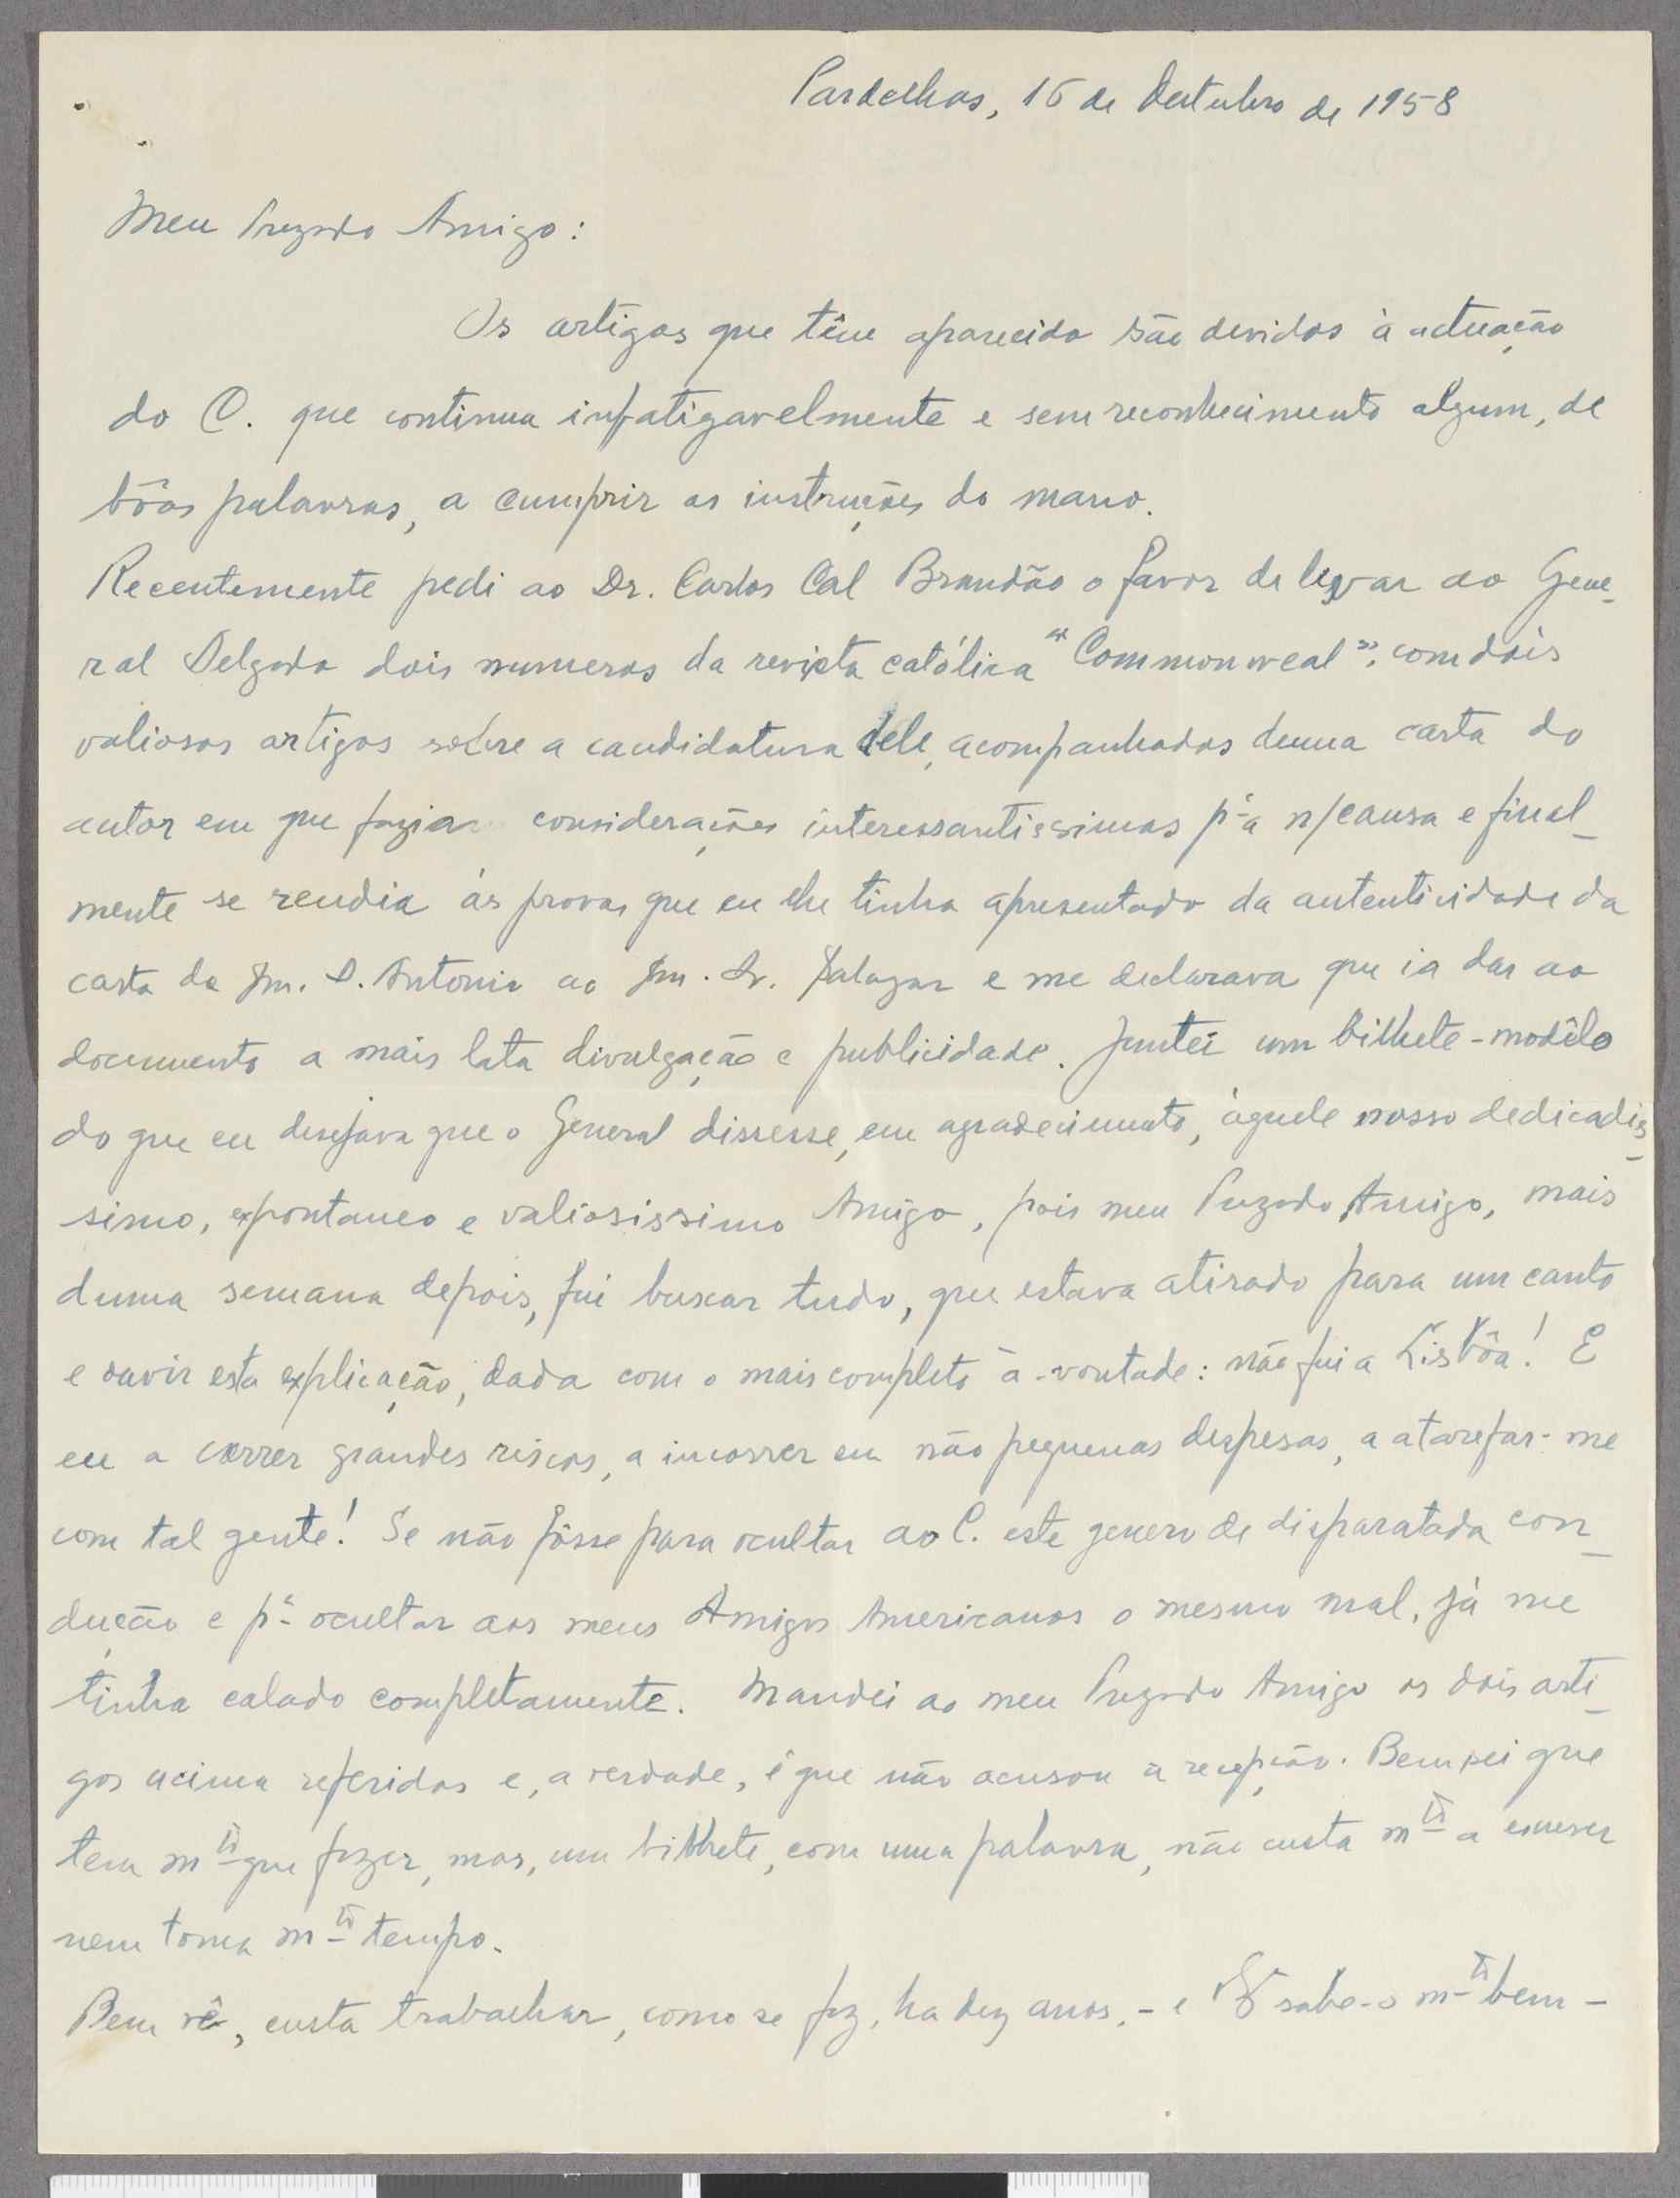 Pardelhas, 16 de Outubro de 1958
Meu Prezado Amigo:
Os artigos que têm aparecido são devidos à actuação
do C. que continua infatigavelmente e sem reconhecimento algum, de
bôas palavras, a cumprir as instruções do mano.
Recentemente pedi ao Dr. Carlos Cal Brandão o favor de levar ao Gene-
ral Delgado dois numeros da revista católica "Commonweal", com dois
valiosos artigos sobre a candidatura dele, acompanhados duma carta do
autor em que fazia considerações interessantissimas pª a n/causa e final-
mente se rendia ás provas que eu lhe tinha apresentado da autenticidade da
carta do Sm. D. Antonio ao Sm. Dr. Salazar e me declarava que ia dar ao
documento a mais lata divulgação e publicidade. Juntei um bilhete-modêlo
do que eu desejava que o General dissesse, em agradecimento, àquele nosso dedicadis-
simo, expontaneo e valiosissimo Amigo, pois meu Prezado Amigo, mais
duma semana depois, fui buscar tudo, que estava atirado para um canto
e ouvir esta explicação, dada com o mais completo à-vontade: não fui a Lisbôa! E
eu a correr grandes riscos, a incorrer em não pequenas despesas, a atarefar-me
com tal gente! Se não fôsse para ocultar ao C. este genero de disparatada con-
dução e pª ocultar aos meus Amigos Americanos o mesmo mal, já me
tinha calado completamente. Mandei ao meu Prezado Amigo os dois arti-
gos acima referidos e, a verdade, é que não acusou a recepção. Bem sei que
tem mto que fazer, mas, um bilhete, com uma palavra, não custa mto a escrever
nem toma mto tempo.
Bem vê, custa trabalhar, como se faz, ha dez anos, - e sabe-o mto bem -